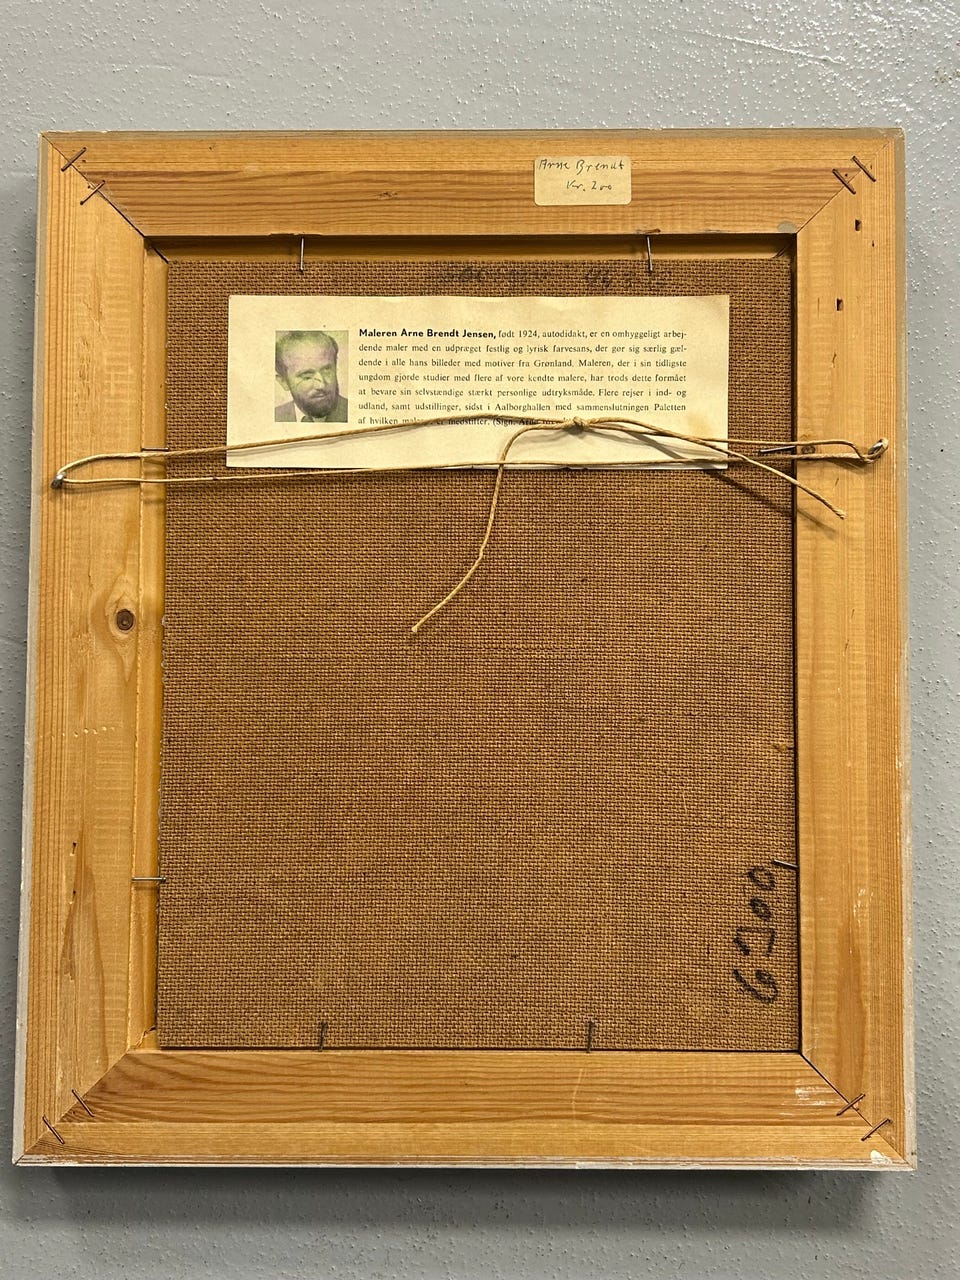 Arne Brendt
Kr. 200
Maleren Arne Brendt Jensen, født 1924, autodidakt, er en omhyggeligt arbej-
dende maler med en udpræget festlig og lyrisk farvesans, der gør sig særlig gæl-
dende i alle hans billeder med motiver fra Grønland. Maleren, der i sin tidligste
ungdom gjorde studier med flere af vore kendte malere, har trods dette formået
at bevare sin selvstændige stærkt personlige udtryksmåde. Flere rejser i ind- og
udland, samt udstillinger, sidst i Aalborghallen med sammenslutningen Paletten
af hvilken maleren er medstifter. (Sign. Arne
6300,